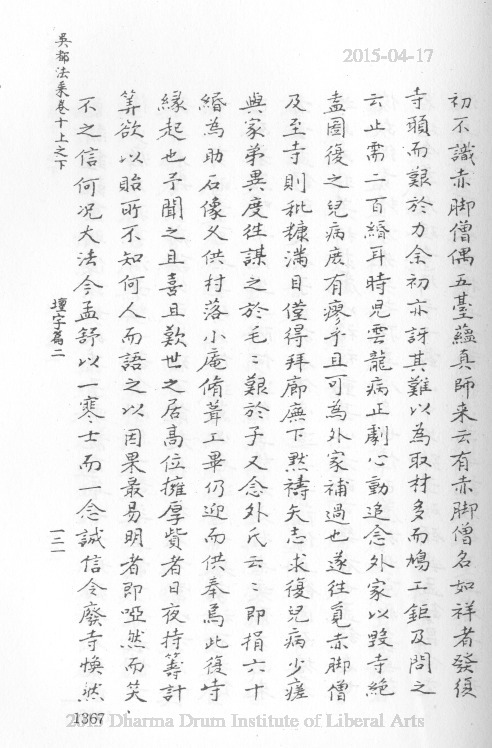 初不識赤脚僧偶五臺蘊真師来云有赤脚僧名如祥者發復
寺頭而艱於力余初亦訝其難以為取材多而鳩工鉅及問之
云止需二百緡耳時兒雲龍病正劇心動追念外家以毀寺絶
盍圖復之兒病庶有瘳乎且可為外家補過也遂往覓赤脚僧
及至寺則秕糠滿目僅得拜廊廡下默禱矢志求復兒病少瘥
與家弟異度往謀之於毛〻艱於子又念外氏云〻即捐六十
緡為助石像乂供村落小庵脩葺工畢仍迎而供奉焉此復寺
緣起也予聞之且喜且歎世之居高位擁厚貲者日夜持籌計
筭欲以貽所不知何人而語之以因果最易明者即啞然而笑
不之信何况大法今孟舒以一寒士而一念誠信令廢寺煥然
吳都法乘卷十上之下
壇宇篇二
一三一
1367
2015-04-17
Dharma Drum Institute of Liberal Arts